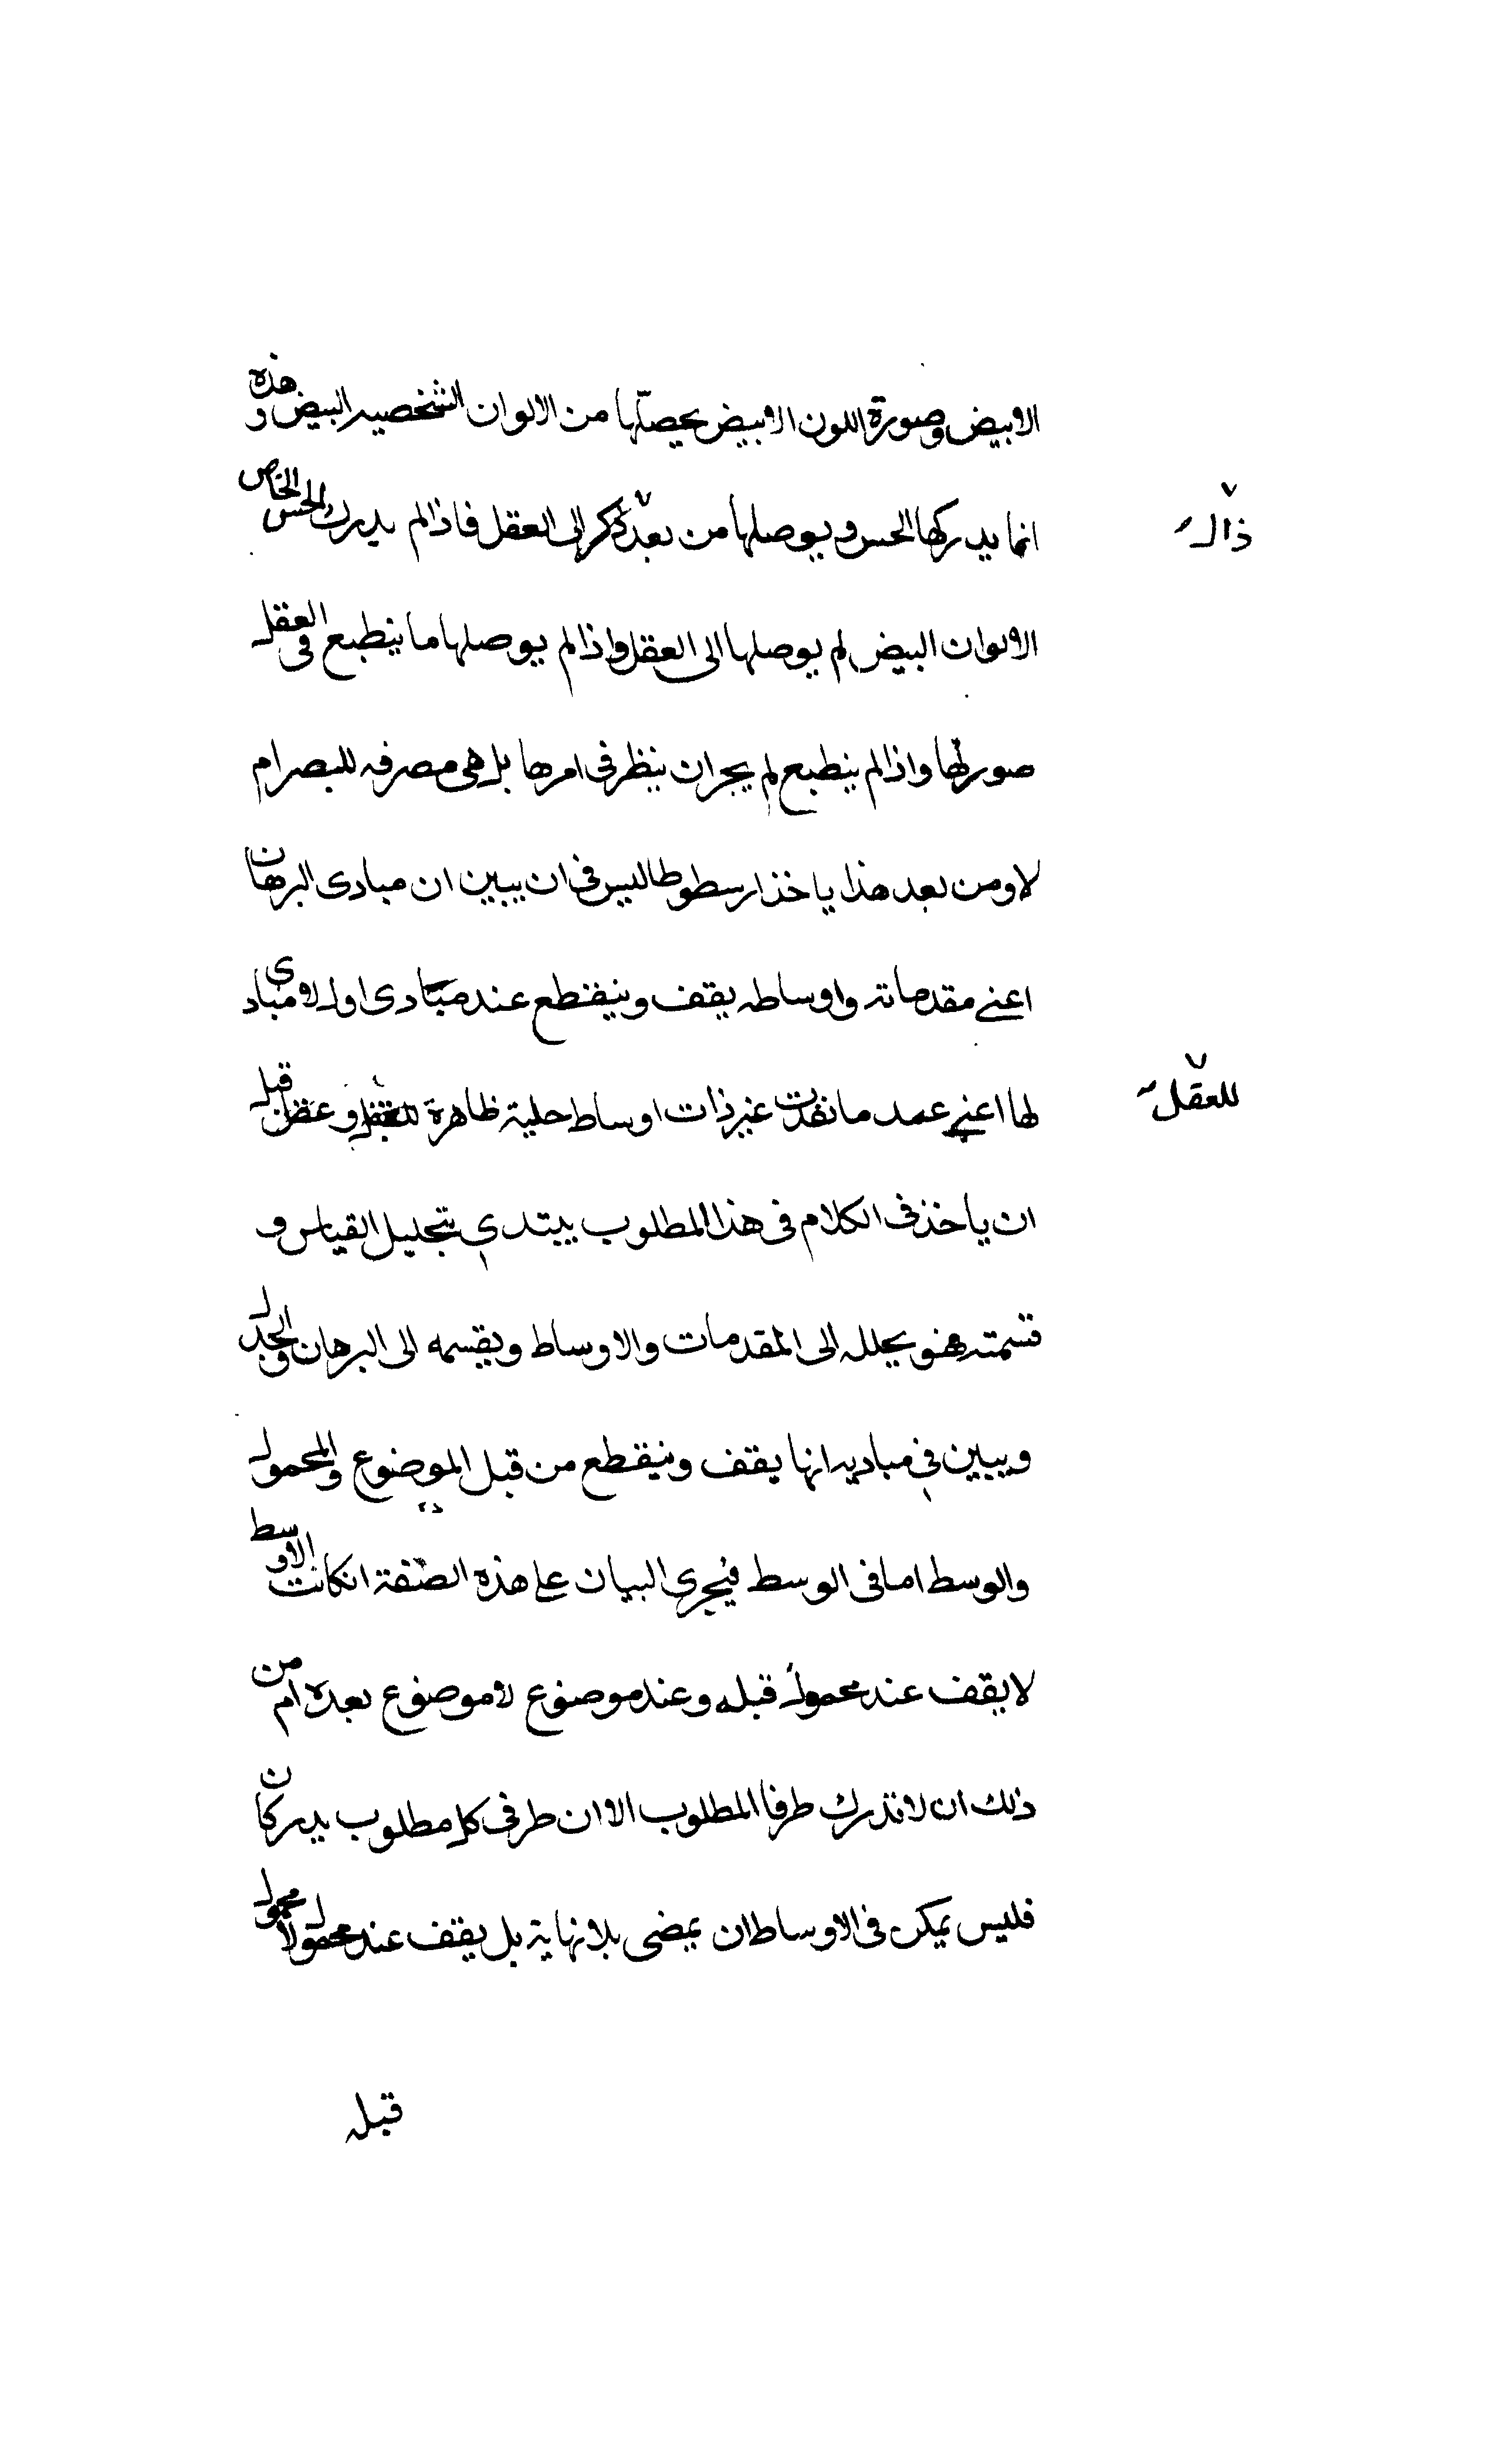 الابيض وصورة اللون الابيض يحصلها من الالوان الشخصيه البيض وهذه
انما يدركها الحس ويوصلها من بعد ذكر الى العقل فاذا لم يدرك الحس الخاص
ذاك
الالوان البيض لم يوصلها الى العقل واذا لم يوصلها ما ينطبع فى العقل
صورتها واذا لم ينطبع لم يجز ان ينظر فى امرها بل هى مصرفه للبصر ام
لا ومن بعد هذا ياخذ ارسطوطاليس فى ان يبين ان مبادى البرهان
اعنى مقدماته واوساطه يقف وينقطع عند مبادى اول لا مبادى
لها اعنى عند مقدمات غير ذات اوساط جلية ظاهرة للعقل و قبل
للعقل
ان ياخذ فى الكلام فى هذا المطلوب يبتدى بتحليل القياس و
قسمته فهو يحلله الى المقدمات والاوساط ويقسمه الى البرهان والجدل
ويبين فى مباديه انها يقف وينقطع من قبل الموضوع والمحمول
والوسط اما فى الوسط فيجرى البيان على هذه الصفة ان كانت الاوسط
لا يقف عند محمول قبله وعند موضوع لا موضوع بعده ام من
ذلك ان لا تدرك طرفا المطلوب الا ان طرفى كل مطلوب يدركان
فليس يمكن فى الاوساط ان يمضى بلا نهاية بل يقف عند محمول لا محمول
قبله